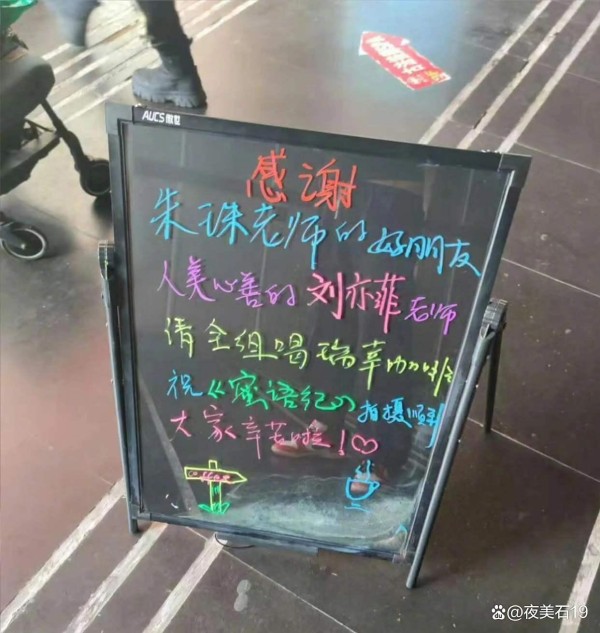 AUCS
感谢
朱珠老师的好朋友
人美心善的刘亦菲老师
请全组喝瑞幸咖啡
祝《蜜语纪》拍摄顺利
大家辛苦啦！♡
夜美石19